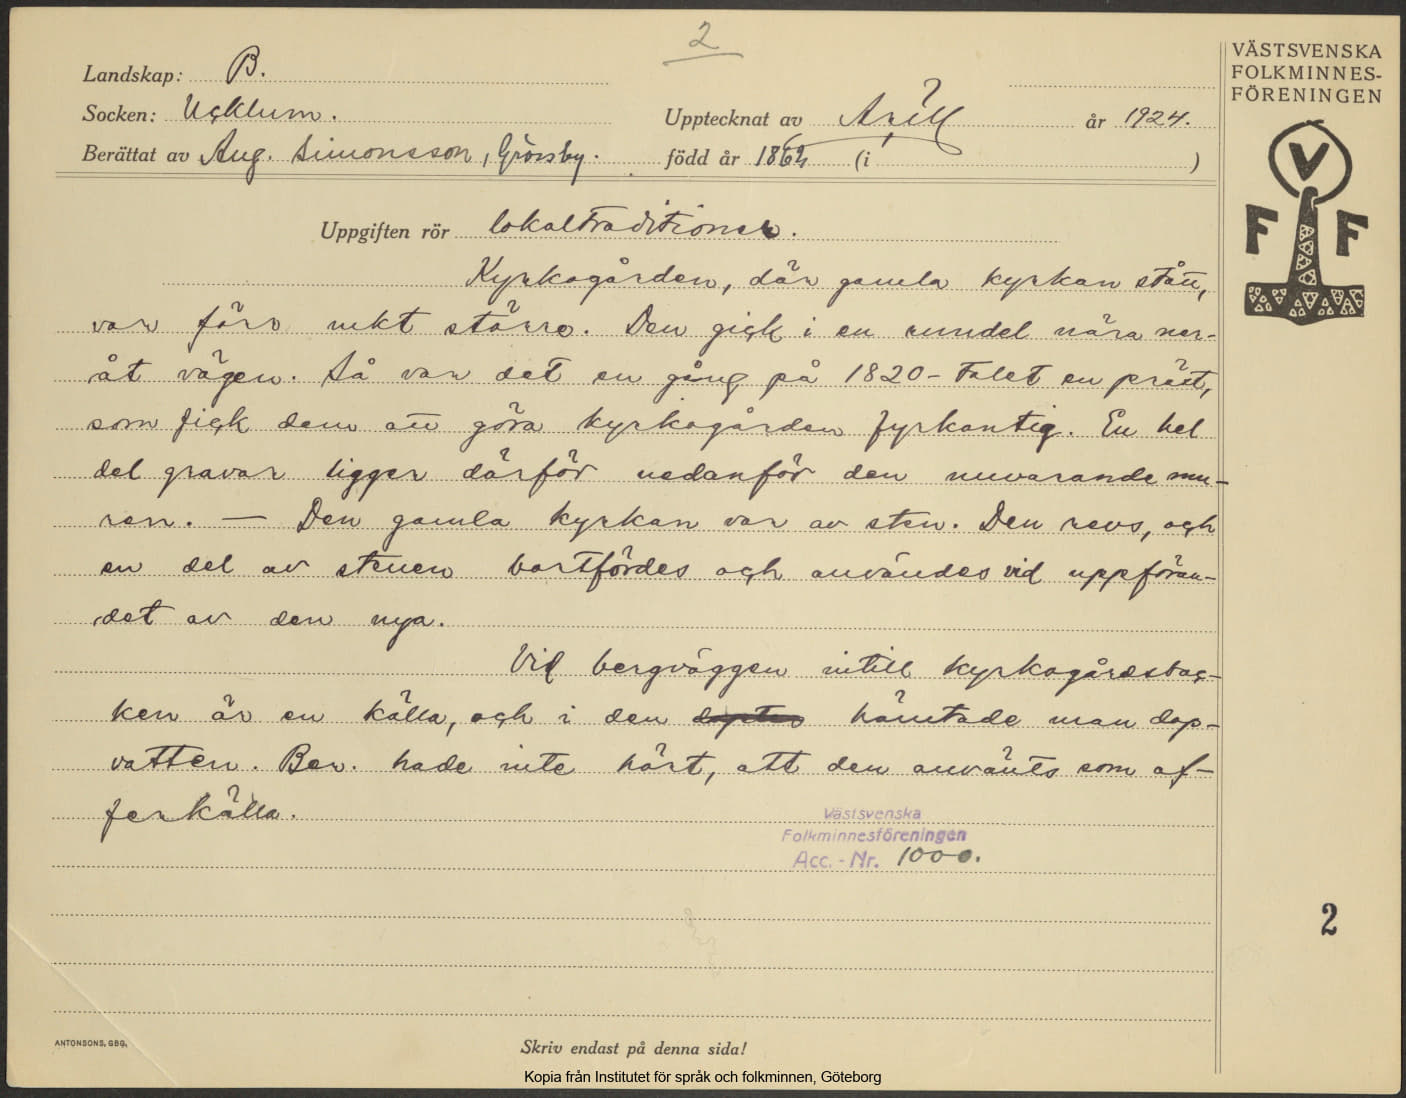 2
VÄSTSVENSKA
FOLKMINNES-
FÖRENINGEN
Landskap: B.
Socken: Ucklum.
Upptecknat av Arill år 1924.
Berättat av Aug. Simonsson, Grössby. född år 1862 (i )
V
F F
Uppgiften rör lokaltraditioner.
Kyrkogården, där gamla kyrkan stått,
var förr mkt större. Den gick i en rundel nära ner-
åt vägen. Så var det en gång på 1820-talet en präst,
som fick dem att göra kyrkogården fyrkantig. En hel
del gravar ligger därför nedanför den nuvarande mu-
ren. — Den gamla kyrkan var av sten. Den revs, och
en del av stenen bortfördes och användes vid uppföran-
det av den nya.
Vid bergväggen intill kyrkogårdsbac-
ken är en källa, och i den hämtade man dop-
vatten. Ber. hade inte hört, att den använts som of-
ferkälla.
Västsvenska
Folkminnesföreningen
Acc.-Nr. 1000.
2
ANTONSONS, GBG.
Skriv endast på denna sida!
Kopia från Institutet för språk och folkminnen, Göteborg